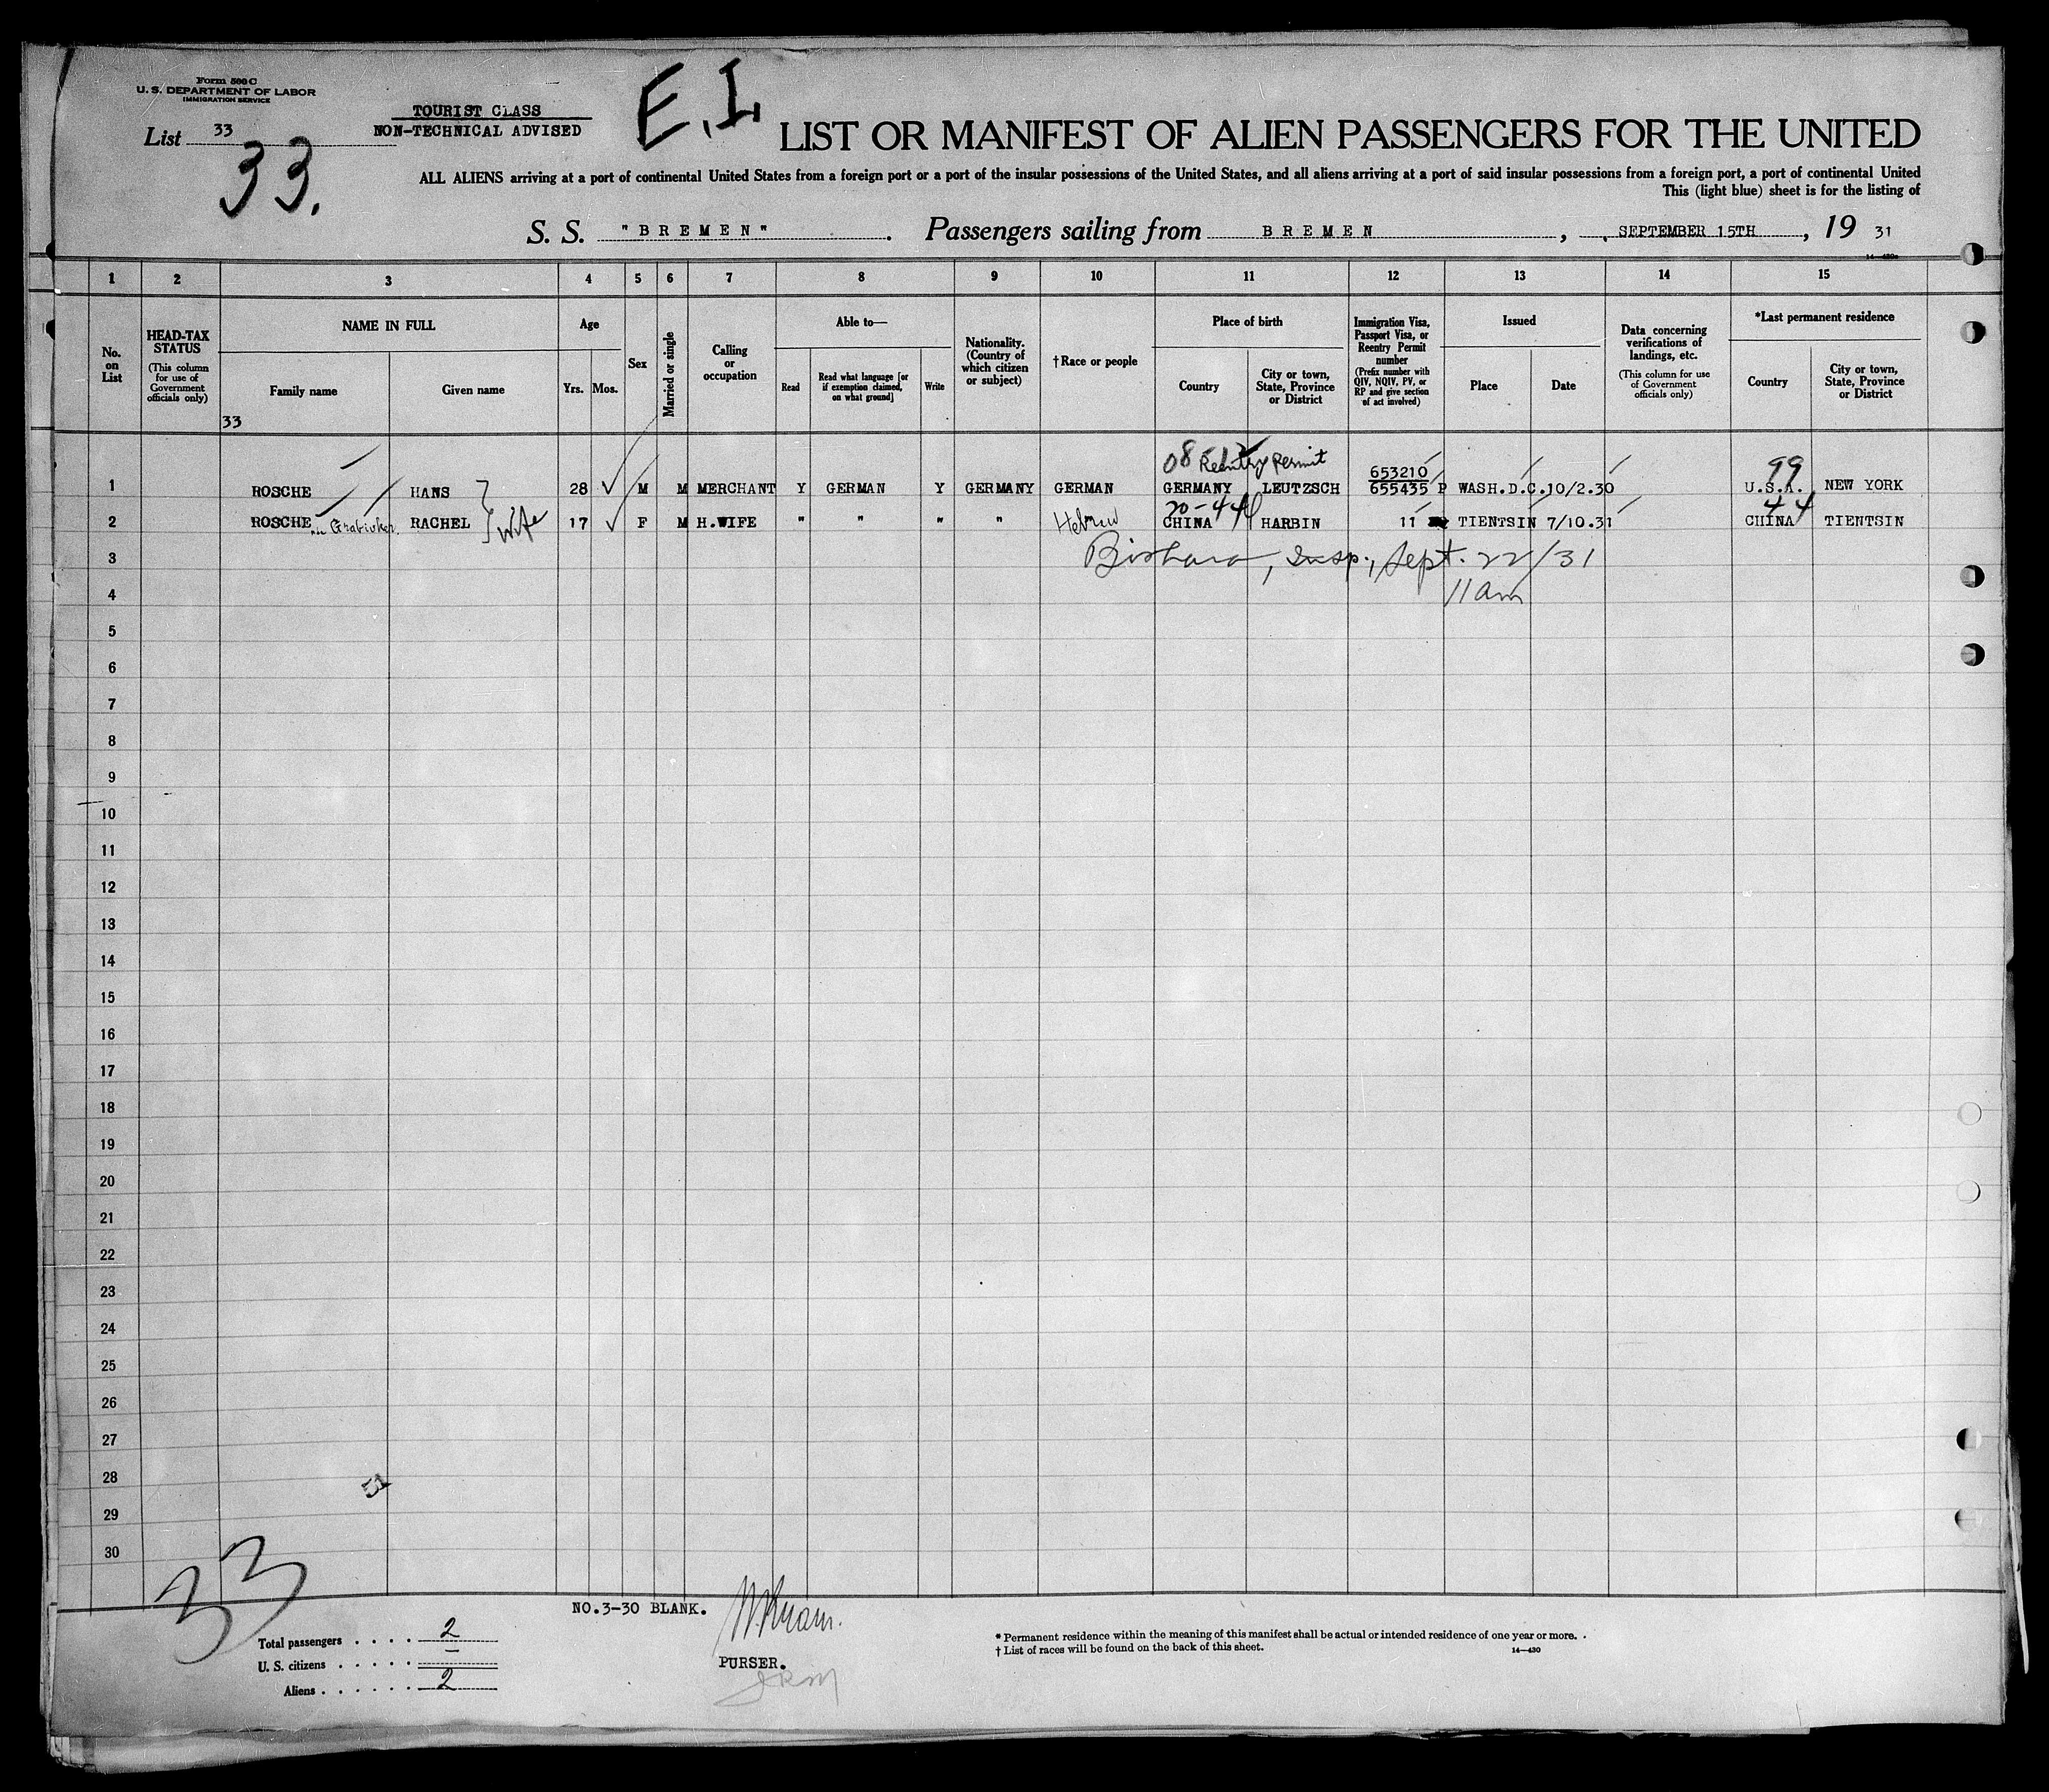 Form 500 C
U. S. DEPARTMENT OF LABOR
IMMIGRATION SERVICE
List 33
33.
TOURIST CLASS
NON-TECHNICAL ADVISED
E.I.
LIST OR MANIFEST OF ALIEN PASSENGERS FOR THE UNITED
ALL ALIENS arriving at a port of continental United States from a foreign port or a port of the insular possessions of the United States, and all aliens arriving at a port of said insular possessions from a foreign port, a port of continental United
This (light blue) sheet is for the listing of
S. S. "BREMEN". Passengers sailing from BREMEN, SEPTEMBER 15TH, 19 31
1 2 3 4 5 6 7 8 9 10 11 12 13 14 15
No. on List
HEAD-TAX STATUS (This column for use of Government officials only)
NAME IN FULL
Family name
Given name
Age
Yrs. Mos.
Sex
Married or single
Calling or occupation
Able to—
Read
Read what language [or if exemption claimed, on what ground]
Write
Nationality. (Country of which citizen or subject)
†Race or people
Place of birth
Country
City or town, State, Province or District
Immigration Visa, Passport Visa, or Reentry Permit number (Prefix number with QIV, NQIV, PV, or RP and give section of act involved)
Issued
Place
Date
Data concerning verifications of landings, etc. (This column for use of Government officials only)
*Last permanent residence
Country
City or town, State, Province or District
33
08 Reentry permit 653210 99
1 ROSCHE HANS 28 M M MERCHANT Y GERMAN Y GERMANY GERMAN GERMANY LEUTZSCH 655435 P WASH.D.C. 10/2.30 U.S.A. NEW YORK
20-44 44
2 ROSCHE RACHEL wife 17 F M H.WIFE " " " " Hebrew CHINA HARBIN 11 TIENTSIN 7/10.31 CHINA TIENTSIN
3 Insp., Sept. 22/31
4 11 am
5
6
7
8
9
10
11
12
13
14
15
16
17
18
19
20
21
22
23
24
25
26
27
28
29
30
33
NO.3-30 BLANK.
PURSER.
Total passengers . . . . 2
U. S. citizens . . . . . —
Aliens . . . . . . 2
* Permanent residence within the meaning of this manifest shall be actual or intended residence of one year or more.
† List of races will be found on the back of this sheet.
14—430